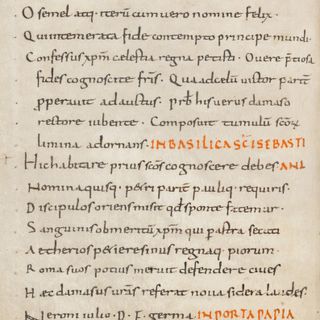 O semel atq; iterũ cum vero nomine felix ·
Qui intemerata fide contempto principe mundi ·
Confessus xp̃m cælestia regna petisti · O vere p̃tiosa
fides cognoscite fr̃s · Qua ad celũ victor parit̃
pperavit ad austus · pr̃b his verus damaso
rectore iubente · Composuit tumulũ sc̃oꝝ
lumina adornans · IN BASILICA SC̃I SEBASTI
Hic habitare prius sc̃os cognoscere debes ANI
Nomina quisq; petri parit̃ pauliq; requiris ·
Discipulos oriens misit qđ sponte fatemur ·
Sanguinis ob meritũ xp̃m qui p astra secuti
Aetherios petiere sinus regnaq; piorum ·
Roma suos potius meruit defendere cives
Hæc damasus vr̃as referat nova sidera laudes ·
Neroni iulio · D · F · germa IN PORTA PAPIA